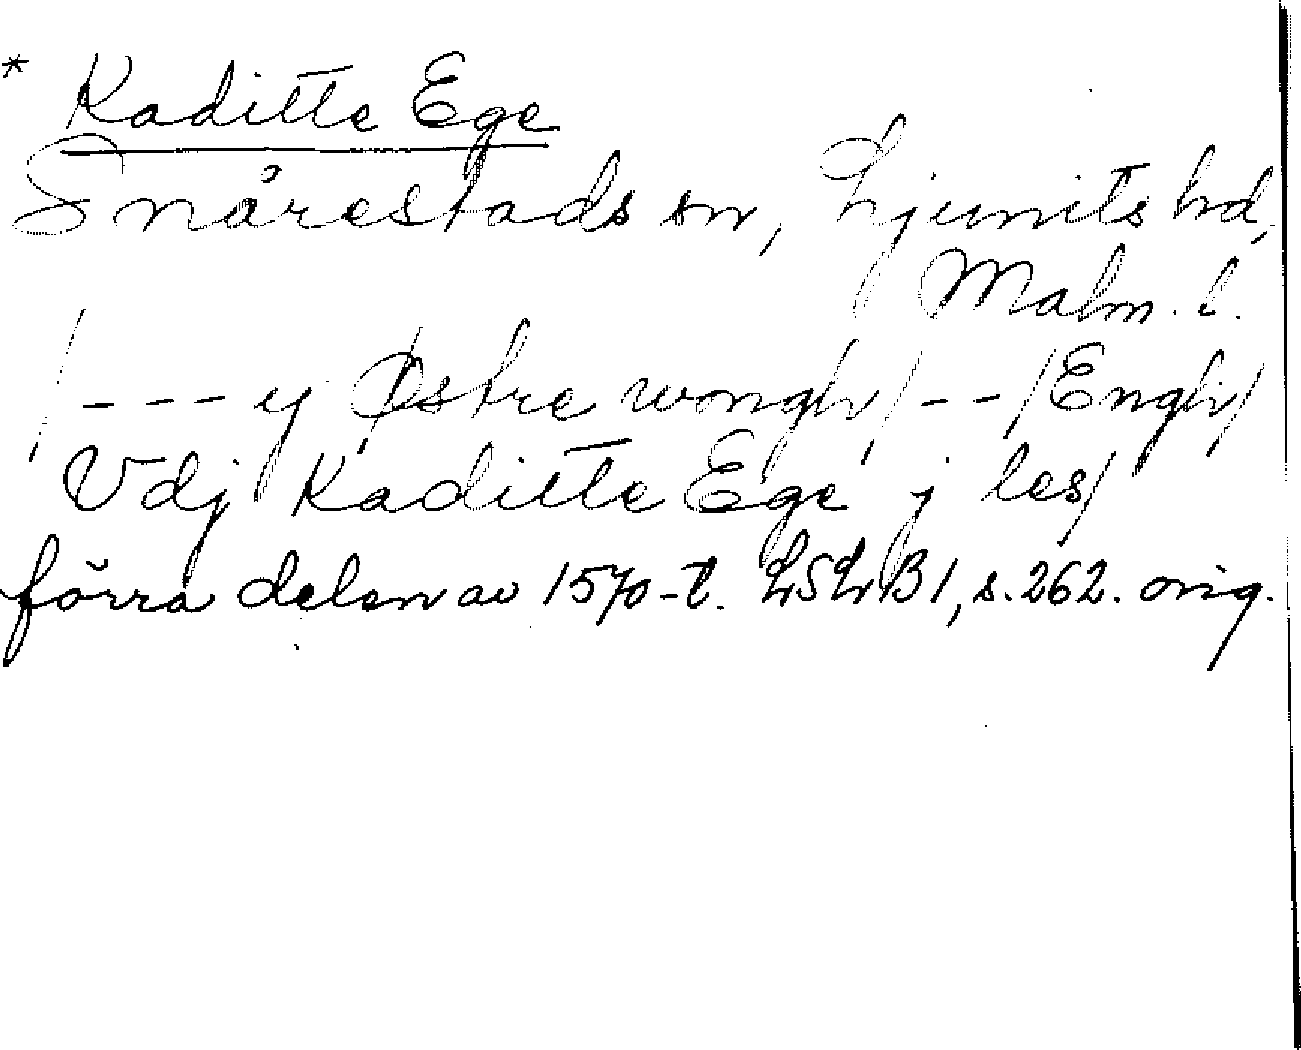 * Kaditte Ege
Snårestads sn, Ljunits hd,
Malm. l.
/--- y Østre wongh/--/Engh/
Vdj Kaditte Ege j les/
förra delen av 1570-t. LSLB1, s. 262. orig.